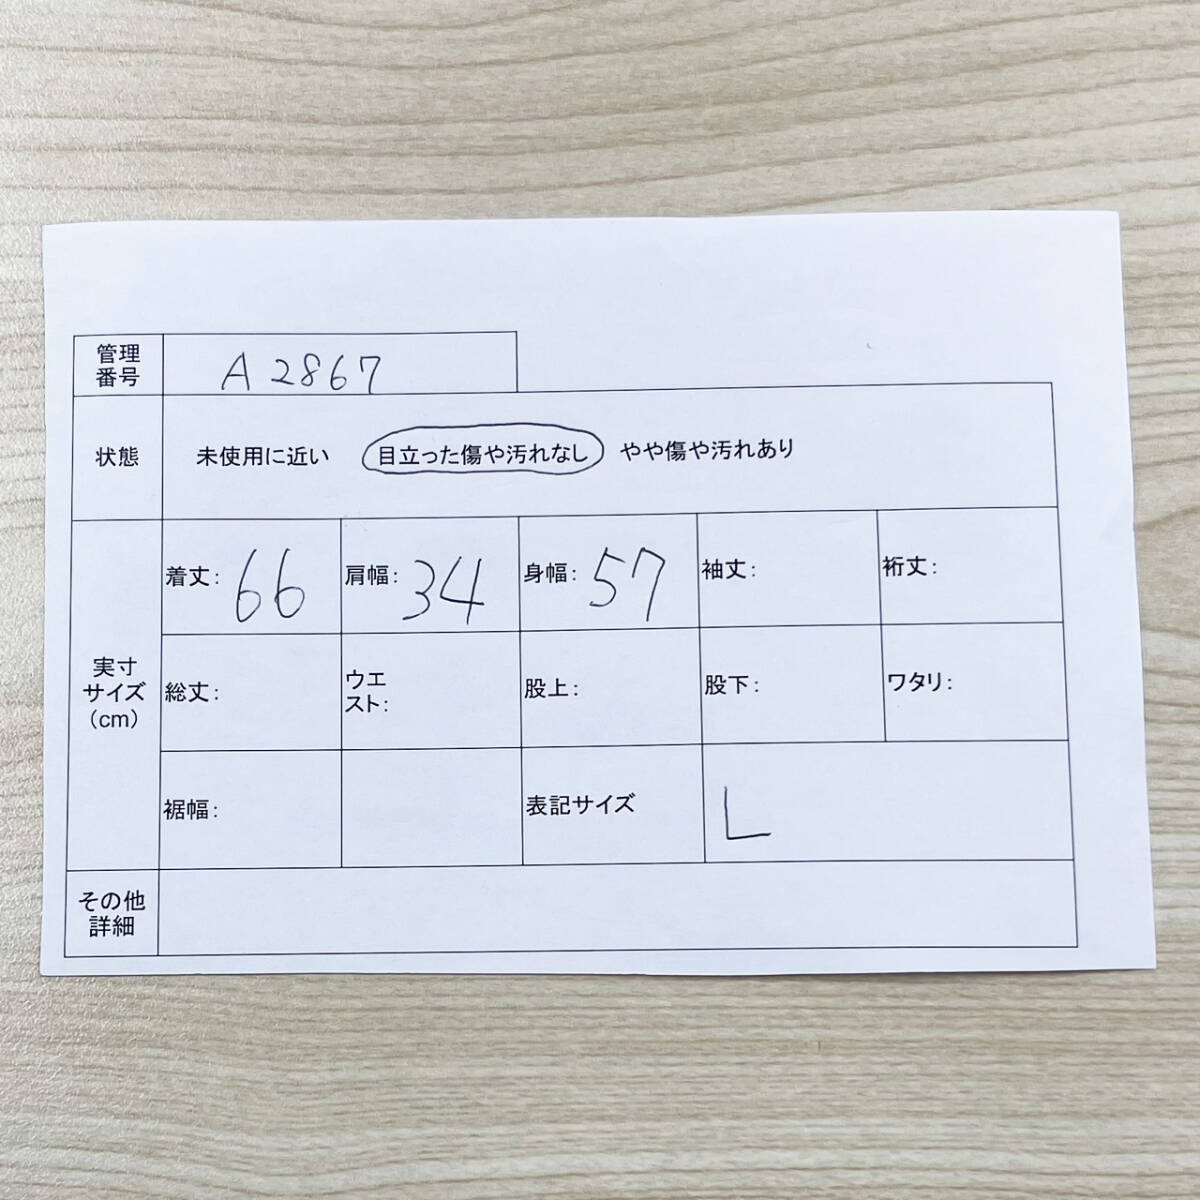 管理
番号
A2867
状態
未使用に近い 目立った傷や汚れなし やや傷や汚れあり
実寸
サイズ
(cm)
着丈: 66
肩幅: 34
身幅: 57
袖丈:
裄丈:
総丈:
ウエ
スト:
股上:
股下:
ワタリ:
裾幅:
表記サイズ
L
その他
詳細